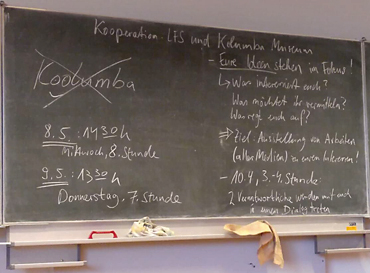 Kooperation LFS und Kolumba Museum
Kolumba
8.5.: 14:30h
Mittwoch, 8. Stunde
9.5.: 13:30h
Donnerstag, 7. Stunde
- Eure Ideen stehen im Fokus!
↳ Was interessiert euch?
Was möchtet ihr vermitteln?
Was regt euch auf?
⇒ Ziel: Ausstellung von Arbeiten
(aller Medien) zu euren Interessen!
- 10.4., 3.-4. Stunde:
2 Verantwortliche werden mit euch
in einen Dialog treten